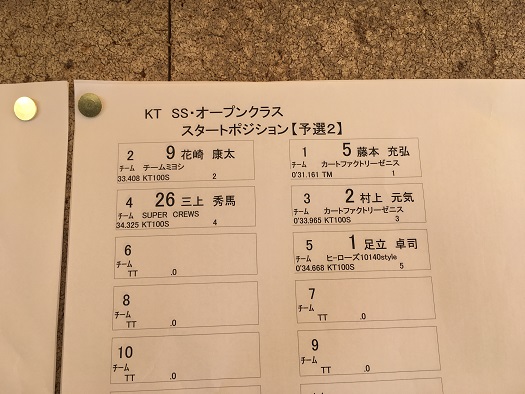 KT SS・オープンクラス
スタートポジション【予選2】
2 9 花崎 康太
チーム チームミヨシ
33.408 KT100S 2
1 5 藤本 充弘
チーム カートファクトリーゼニス
0'31.161 TM 1
4 26 三上 秀馬
チーム SUPER CREWS
34.325 KT100S 4
3 2 村上 元気
チーム カートファクトリーゼニス
0'33.965 KT100S 3
6
チーム
TT .0
5 1 足立 卓司
チーム ヒーローズ10140style
0'34.668 KT100S 5
8
チーム
TT .0
7
チーム
TT .0
10
チーム
TT .0
9
チーム
TT .0